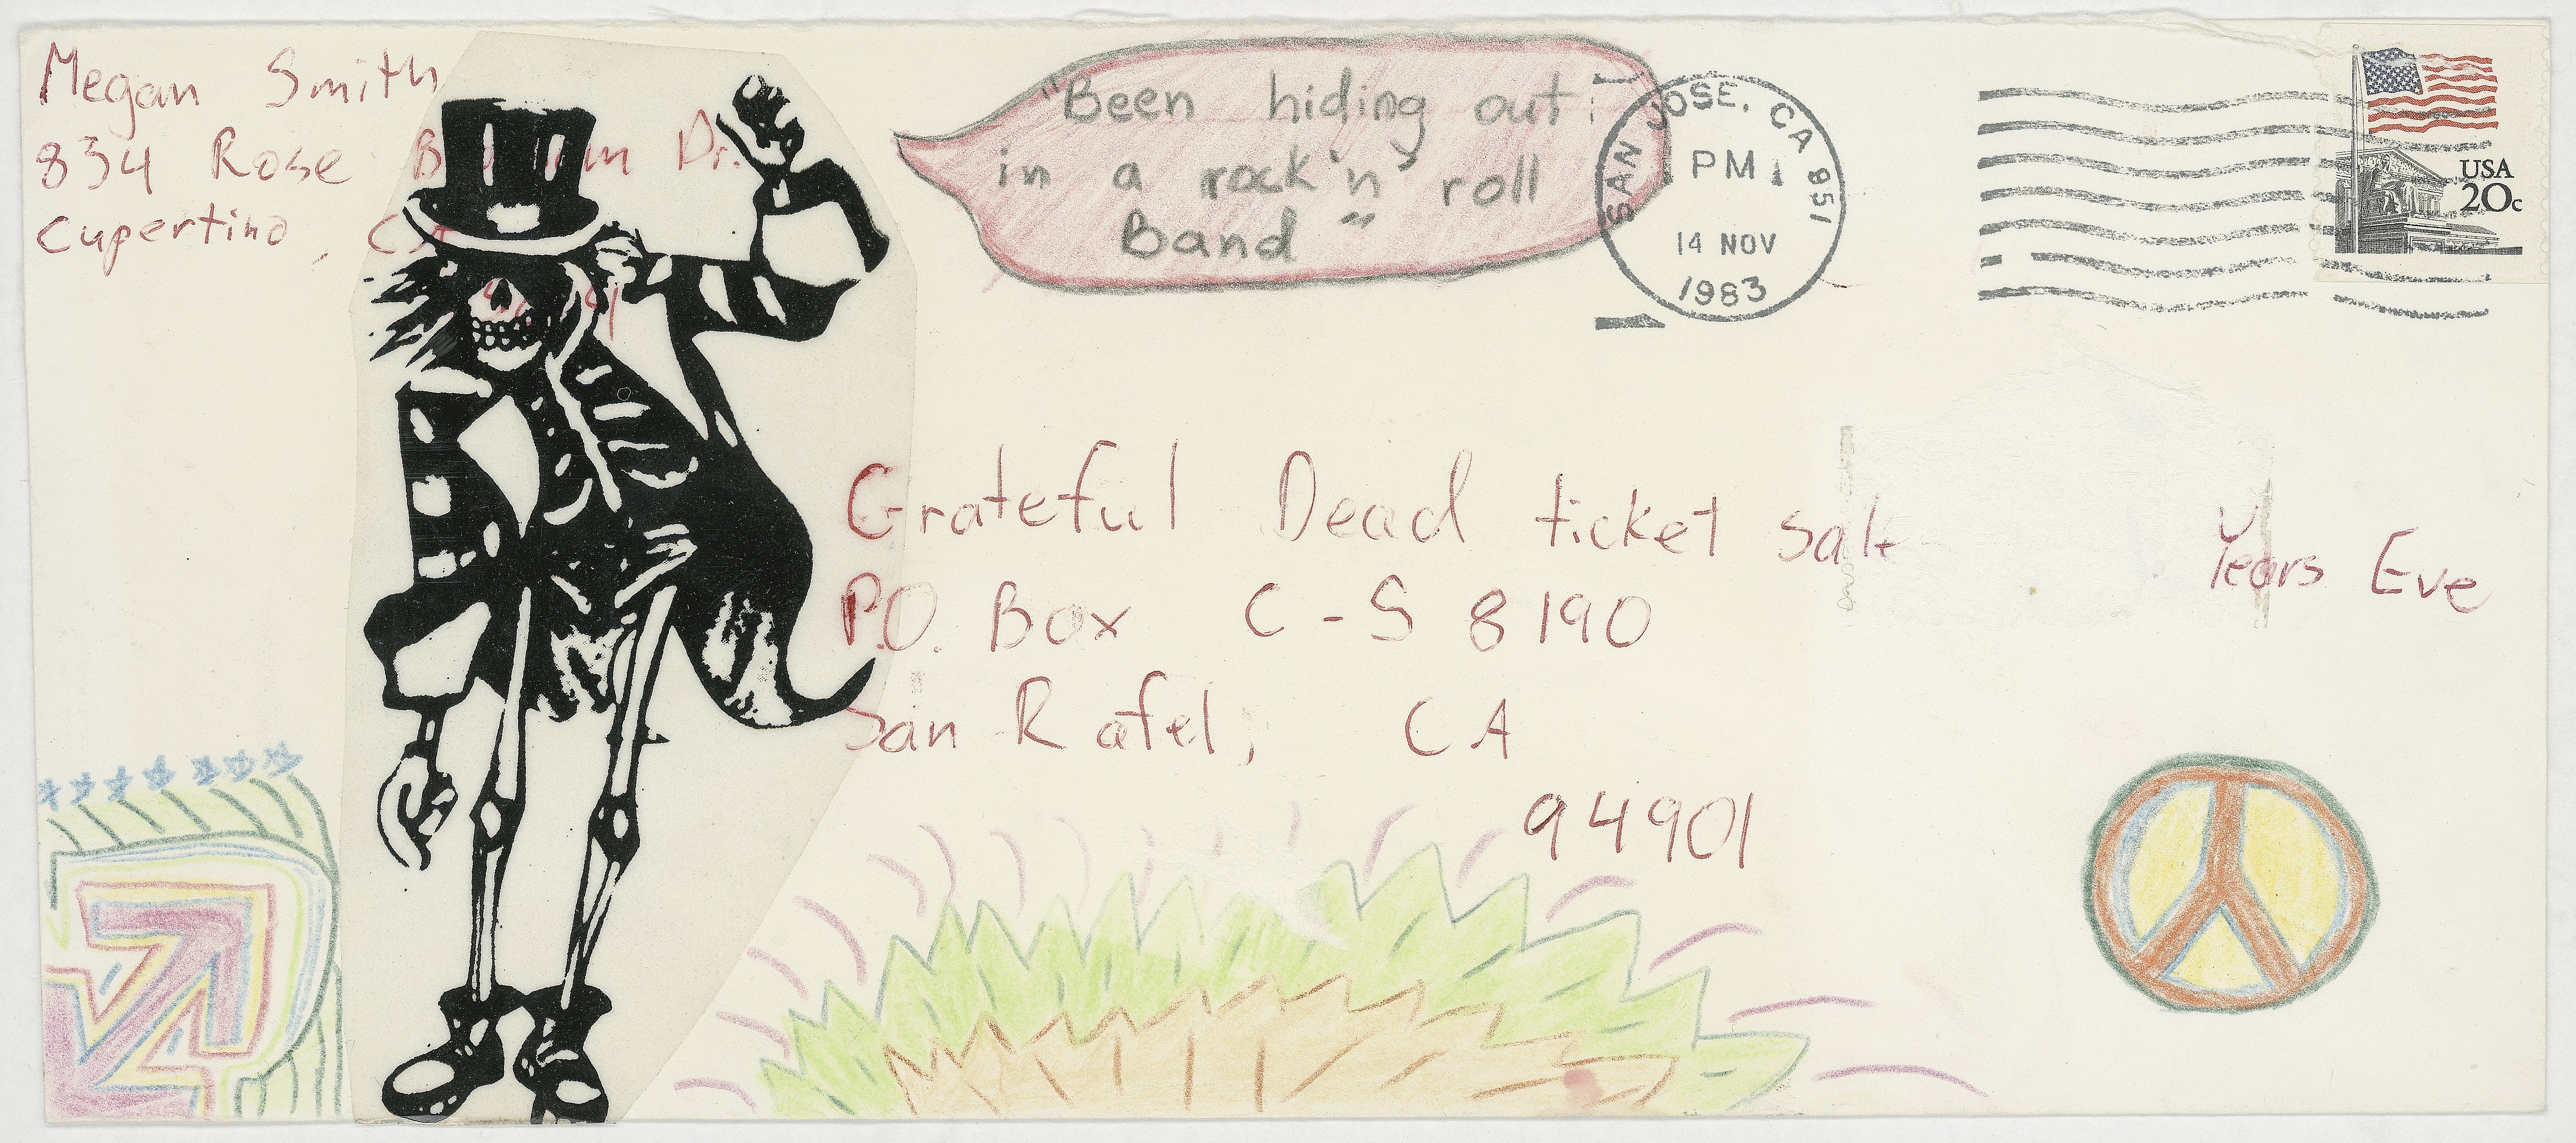 Megan Smith
834 Rose Dr.
Cupertino, CA
"Been hiding out
in a rock 'n' roll
Band"
SAN JOSE, CA 951
PM
14 NOV
1983
USA
20c
Grateful Dead ticket sale
Years Eve
P.O. Box C-S 8190
San Rafel, CA
94901